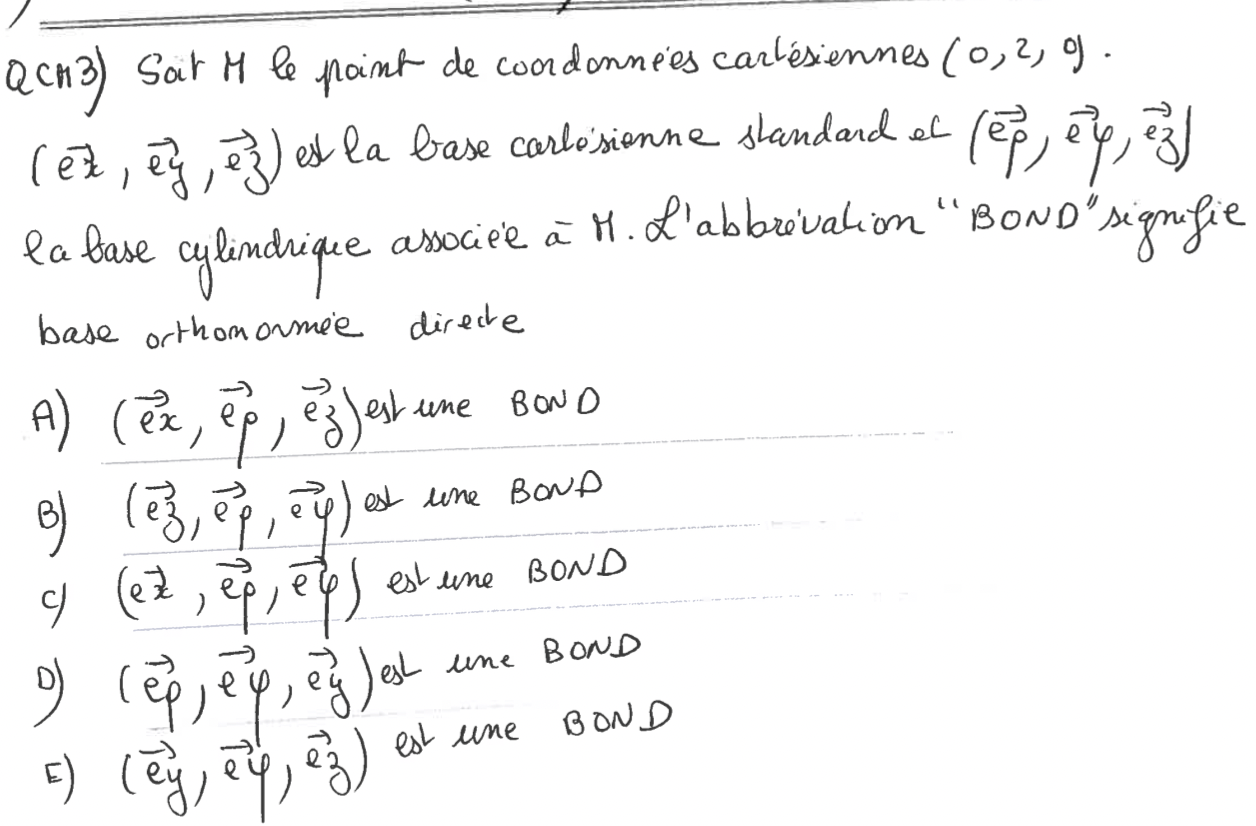 QCM3) Soit M le point de coordonnées cartésiennes (0, 2, 0).
(ex, ey, ez) est la base cartésienne standard et (eρ, eφ, ez)
la base cylindrique associée à M. L'abbrévation "BOND" signifie
base orthonormée directe
A) (ex, eρ, ez) est une BOND
B) (ez, eρ, eφ) est une BOND
C) (ex, eρ, eφ) est une BOND
D) (eρ, eφ, ey) est une BOND
E) (ey, eφ, ez) est une BOND